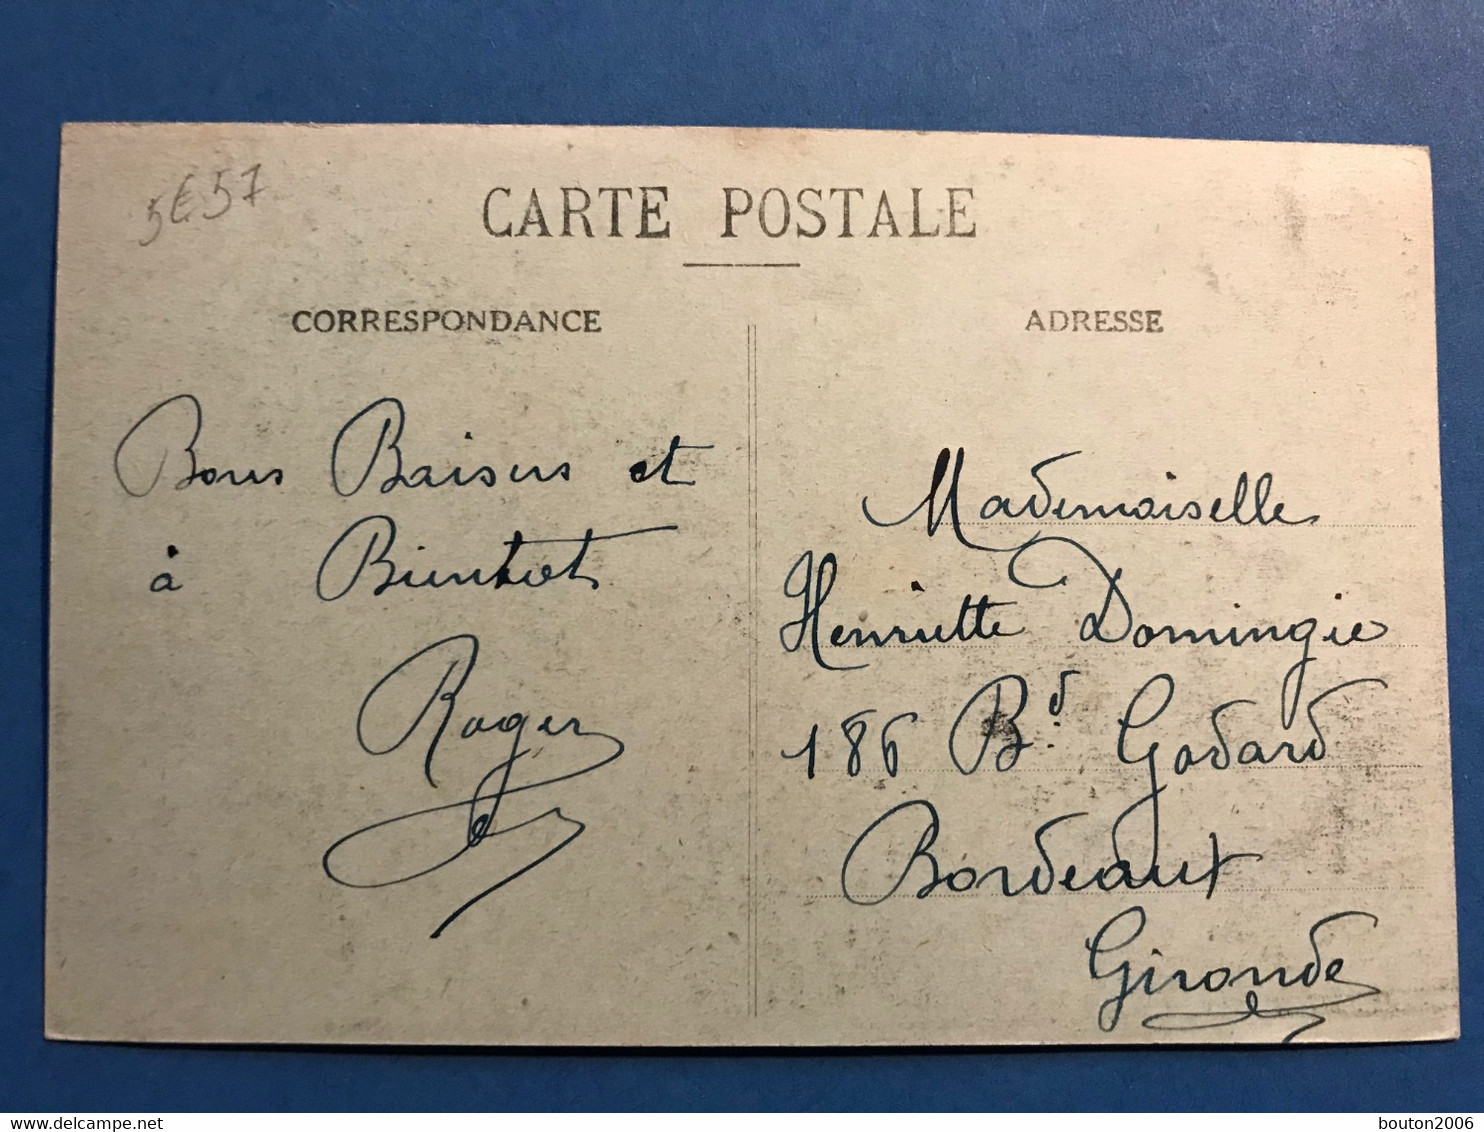 5€57
CARTE POSTALE
CORRESPONDANCE
Bons Baisers et
à Bientôt
Roger
ADRESSE
Mademoiselle
Henriette Domingie
186 Bd. Godard
Bordeaux
Gironde
delcampe.net
bouton2006